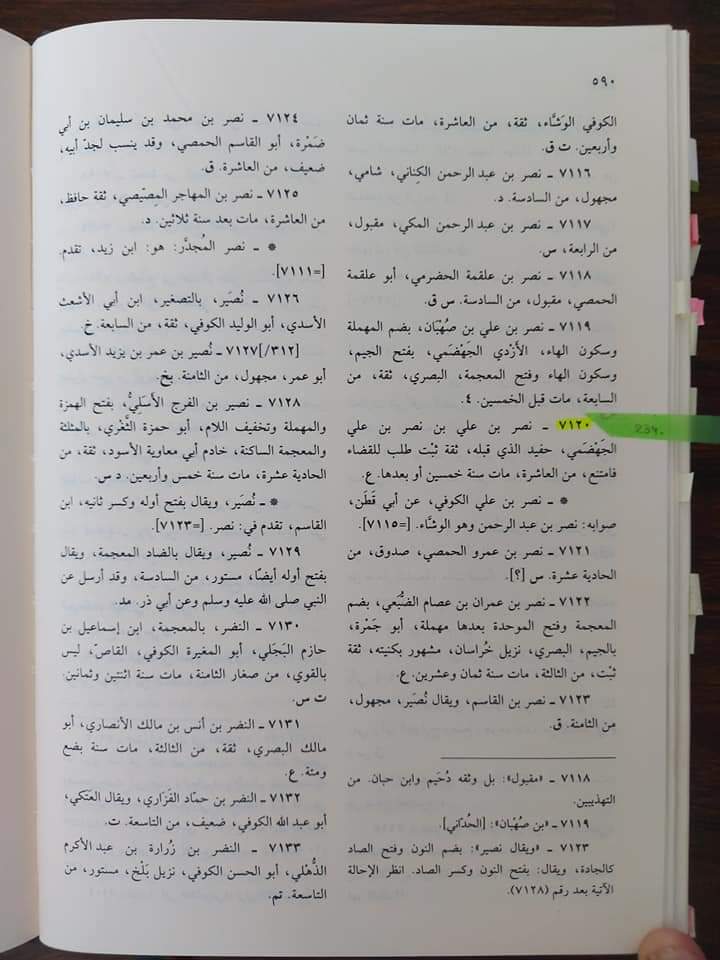 ٥٩٠
الكوفي الوَشَّاء، ثقة، من العاشرة، مات سنة ثمان
وأربعين. ت ق.
٧١١٦ ـ نصر بن عبد الرحمن الكِناني، شامي،
مجهول، من السادسة. د.
٧١١٧ ـ نصر بن عبد الرحمن المكي، مقبول،
من الرابعة، س.
٧١١٨ ـ نصر بن علقمة الحضرمي، أبو علقمة
الحمصي، مقبول، من السادسة. س ق.
٧١١٩ ـ نصر بن علي بن صُهْبَان، بضم المهملة
وسكون الهاء، الأزْدي الجَهْضَمي، بفتح الجيم،
وسكون الهاء وفتح المعجمة، البصري، ثقة، من
السابعة، مات قبل الخمسين. ٤.
٧١٢٠ ـ نصر بن علي بن نصر بن علي
الجَهْضَمي، حفيد الذي قبله، ثقة ثبْت طلب للقضاء
فامتنع، من العاشرة، مات سنة خمسين أو بعدها. ع.
* ـ نصر بن علي الكوفي، عن أبي قَطَن،
صوابه: نصر بن عبد الرحمن وهو الوشَّاء. [=٧١١٥].
٧١٢١ ـ نصر بن عمرو الحمصي، صدوق، من
الحادية عشرة. س [؟].
٧١٢٢ ـ نصر بن عمران بن عصام الضُّبَعي، بضم
المعجمة وفتح الموحدة بعدها مهملة، أبو جَمْرة،
بالجيم، البصري، نزيل خُراسان، مشهور بكنيته، ثقة
ثبْت، من الثالثة، مات سنة ثمان وعشرين. ع.
٧١٢٣ ـ نصر بن القاسم، ويقال نُصَير، مجهول،
من الثامنة. ق.
٧١١٨ ـ «مقبول»: بل وثقه دُحَيم وابن حبان. من
التهذيبين.
٧١١٩ ـ «بن صُهْبان»: [الحُدّاني].
٧١٢٣ ـ «ويقال نصير»: بضم النون وفتح الصاد
كالجادة، ويقال: بفتح النون وكسر الصاد. انظر الإحالة
الآتية بعد رقم (٧١٢٨).
٧١٢٤ ـ نصر بن محمد بن سليمان بن أبي
ضَمْرة، أبو القاسم الحمصي، وقد ينسب لجدّ أبيه،
ضعيف، من العاشرة. ق.
٧١٢٥ ـ نصر بن المهاجر المِصّيصي، ثقة حافظ،
من العاشرة، مات بعد سنة ثلاثين. د.
* ـ نصر المُجدَّر: هو: ابن زيد، تقدم.
[=٧١١١].
٧١٢٦ ـ نُصَير، بالتصغير، ابن أبي الأشعث
الأسدي، أبو الوليد الكوفي، ثقة، من السابعة. خ.
[٣١٢/]٧١٢٧ ـ نُصير بن عمر بن يزيد الأسدي،
أبو عمر، مجهول، من الثامنة. بخ.
٧١٢٨ ـ نصير بن الفرج الأسَليُّ، بفتح الهمزة
والمهملة وتخفيف اللام، أبو حمزة الثَّغْري، بالمثلثة
والمعجمة الساكنة، خادم أبي معاوية الأسود، ثقة، من
الحادية عشرة، مات سنة خمس وأربعين. د س.
* ـ نُصَير، ويقال بفتح أوله وكسر ثانيه، ابن
القاسم، تقدم في: نصر. [=٧١٢٣].
٧١٢٩ ـ نُصير، ويقال بالضاد المعجمة، ويقال
بفتح أوله أيضًا، مستور، من السادسة، وقد أرسل عن
النبي صلى الله عليه وسلم وعن أبي ذر. مد.
٧١٣٠ ـ النضر، بالمعجمة، ابن إسماعيل بن
حازم البَجَلي، أبو المغيرة الكوفي، القاصّ، ليس
بالقوي، من صغار الثامنة، مات سنة اثنتين وثمانين.
ت س.
٧١٣١ ـ النضر بن أنس بن مالك الأنصاري، أبو
مالك البصري، ثقة، من الثالثة، مات سنة بضع
ومئة. ع.
٧١٣٢ ـ النضر بن حمّاد الفَزَاري، ويقال العَتكي،
أبو عبد الله الكوفي، ضعيف، من التاسعة. ت.
٧١٣٣ ـ النضر بن زُرارة بن عبد الأكرم
الذُّهْلي، أبو الحسن الكوفي، نزيل بَلْخ، مستور، من
التاسعة. تم.
234.